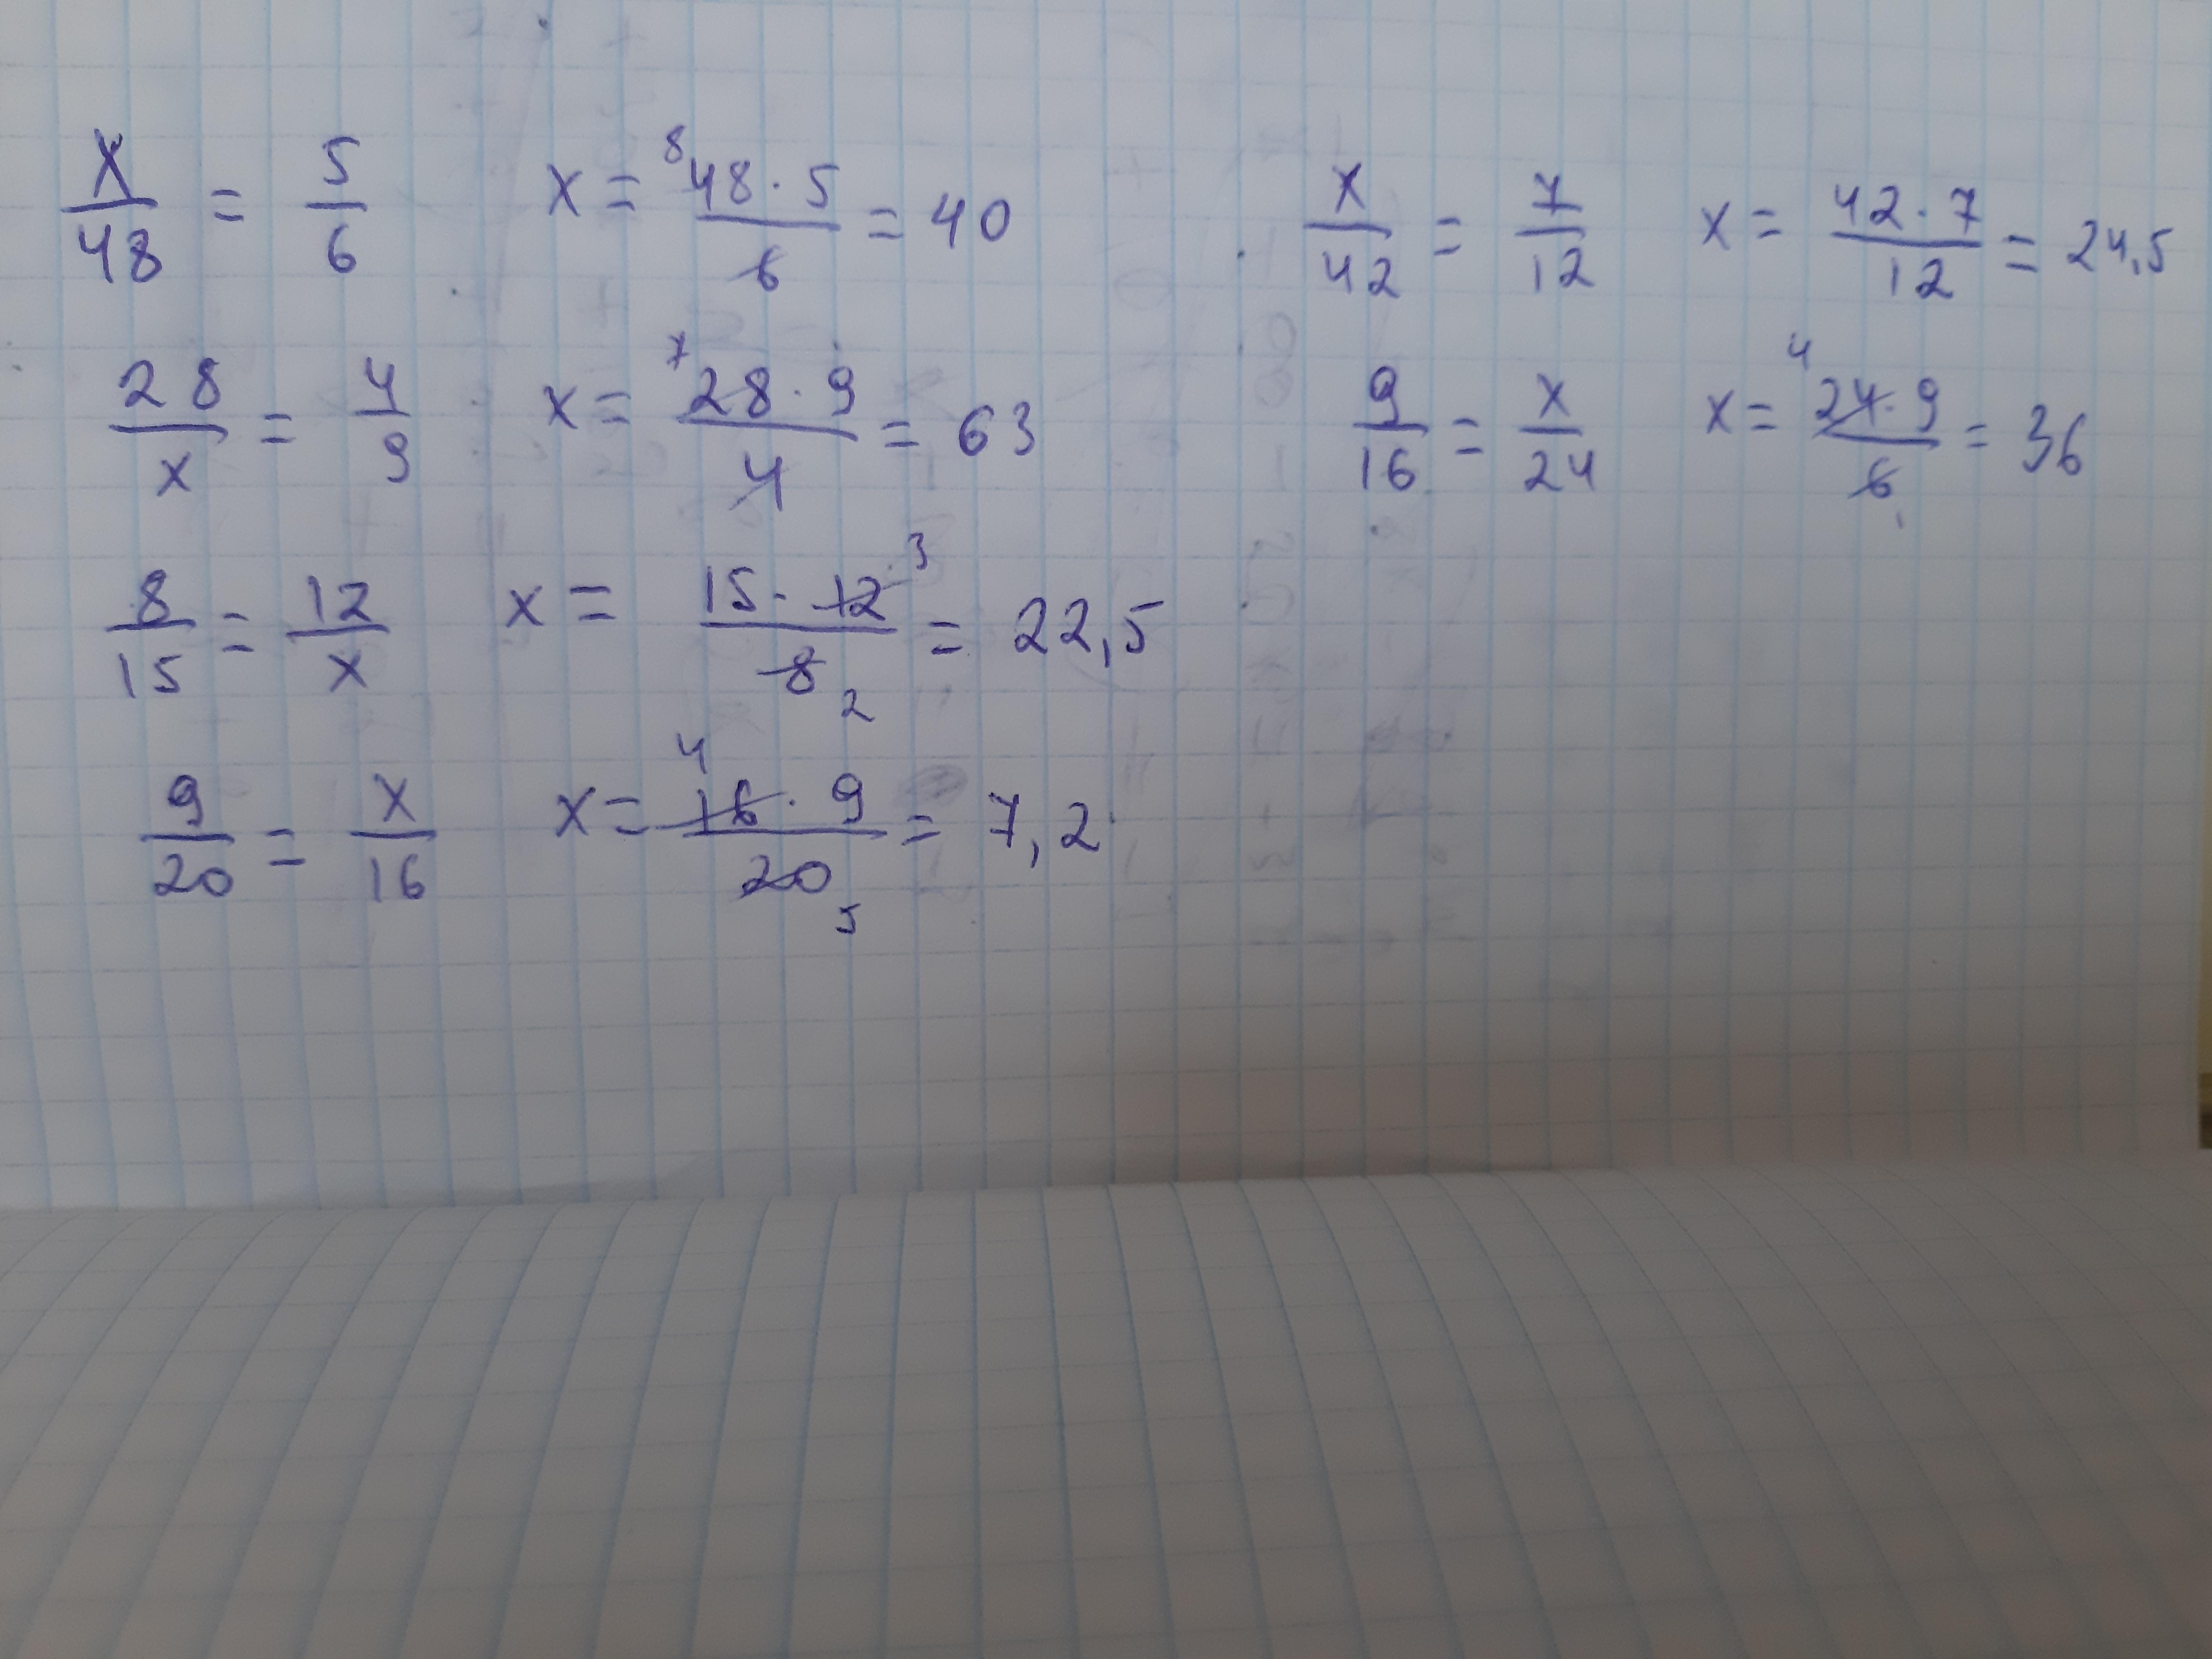 x/48 = 5/6 x = ⁸48 · 5/6 = 40
28/x = 4/9 x = ⁷28 · 9/4 = 63
8/15 = 12/x x = 15 · 12³/8₂ = 22,5
9/20 = x/16 x = ⁴16 · 9/20₅ = 7,2
x/42 = 7/12 x = 42 · 7/12 = 24,5
9/16 = x/24 x = ⁴24 · 9/6₁ = 36